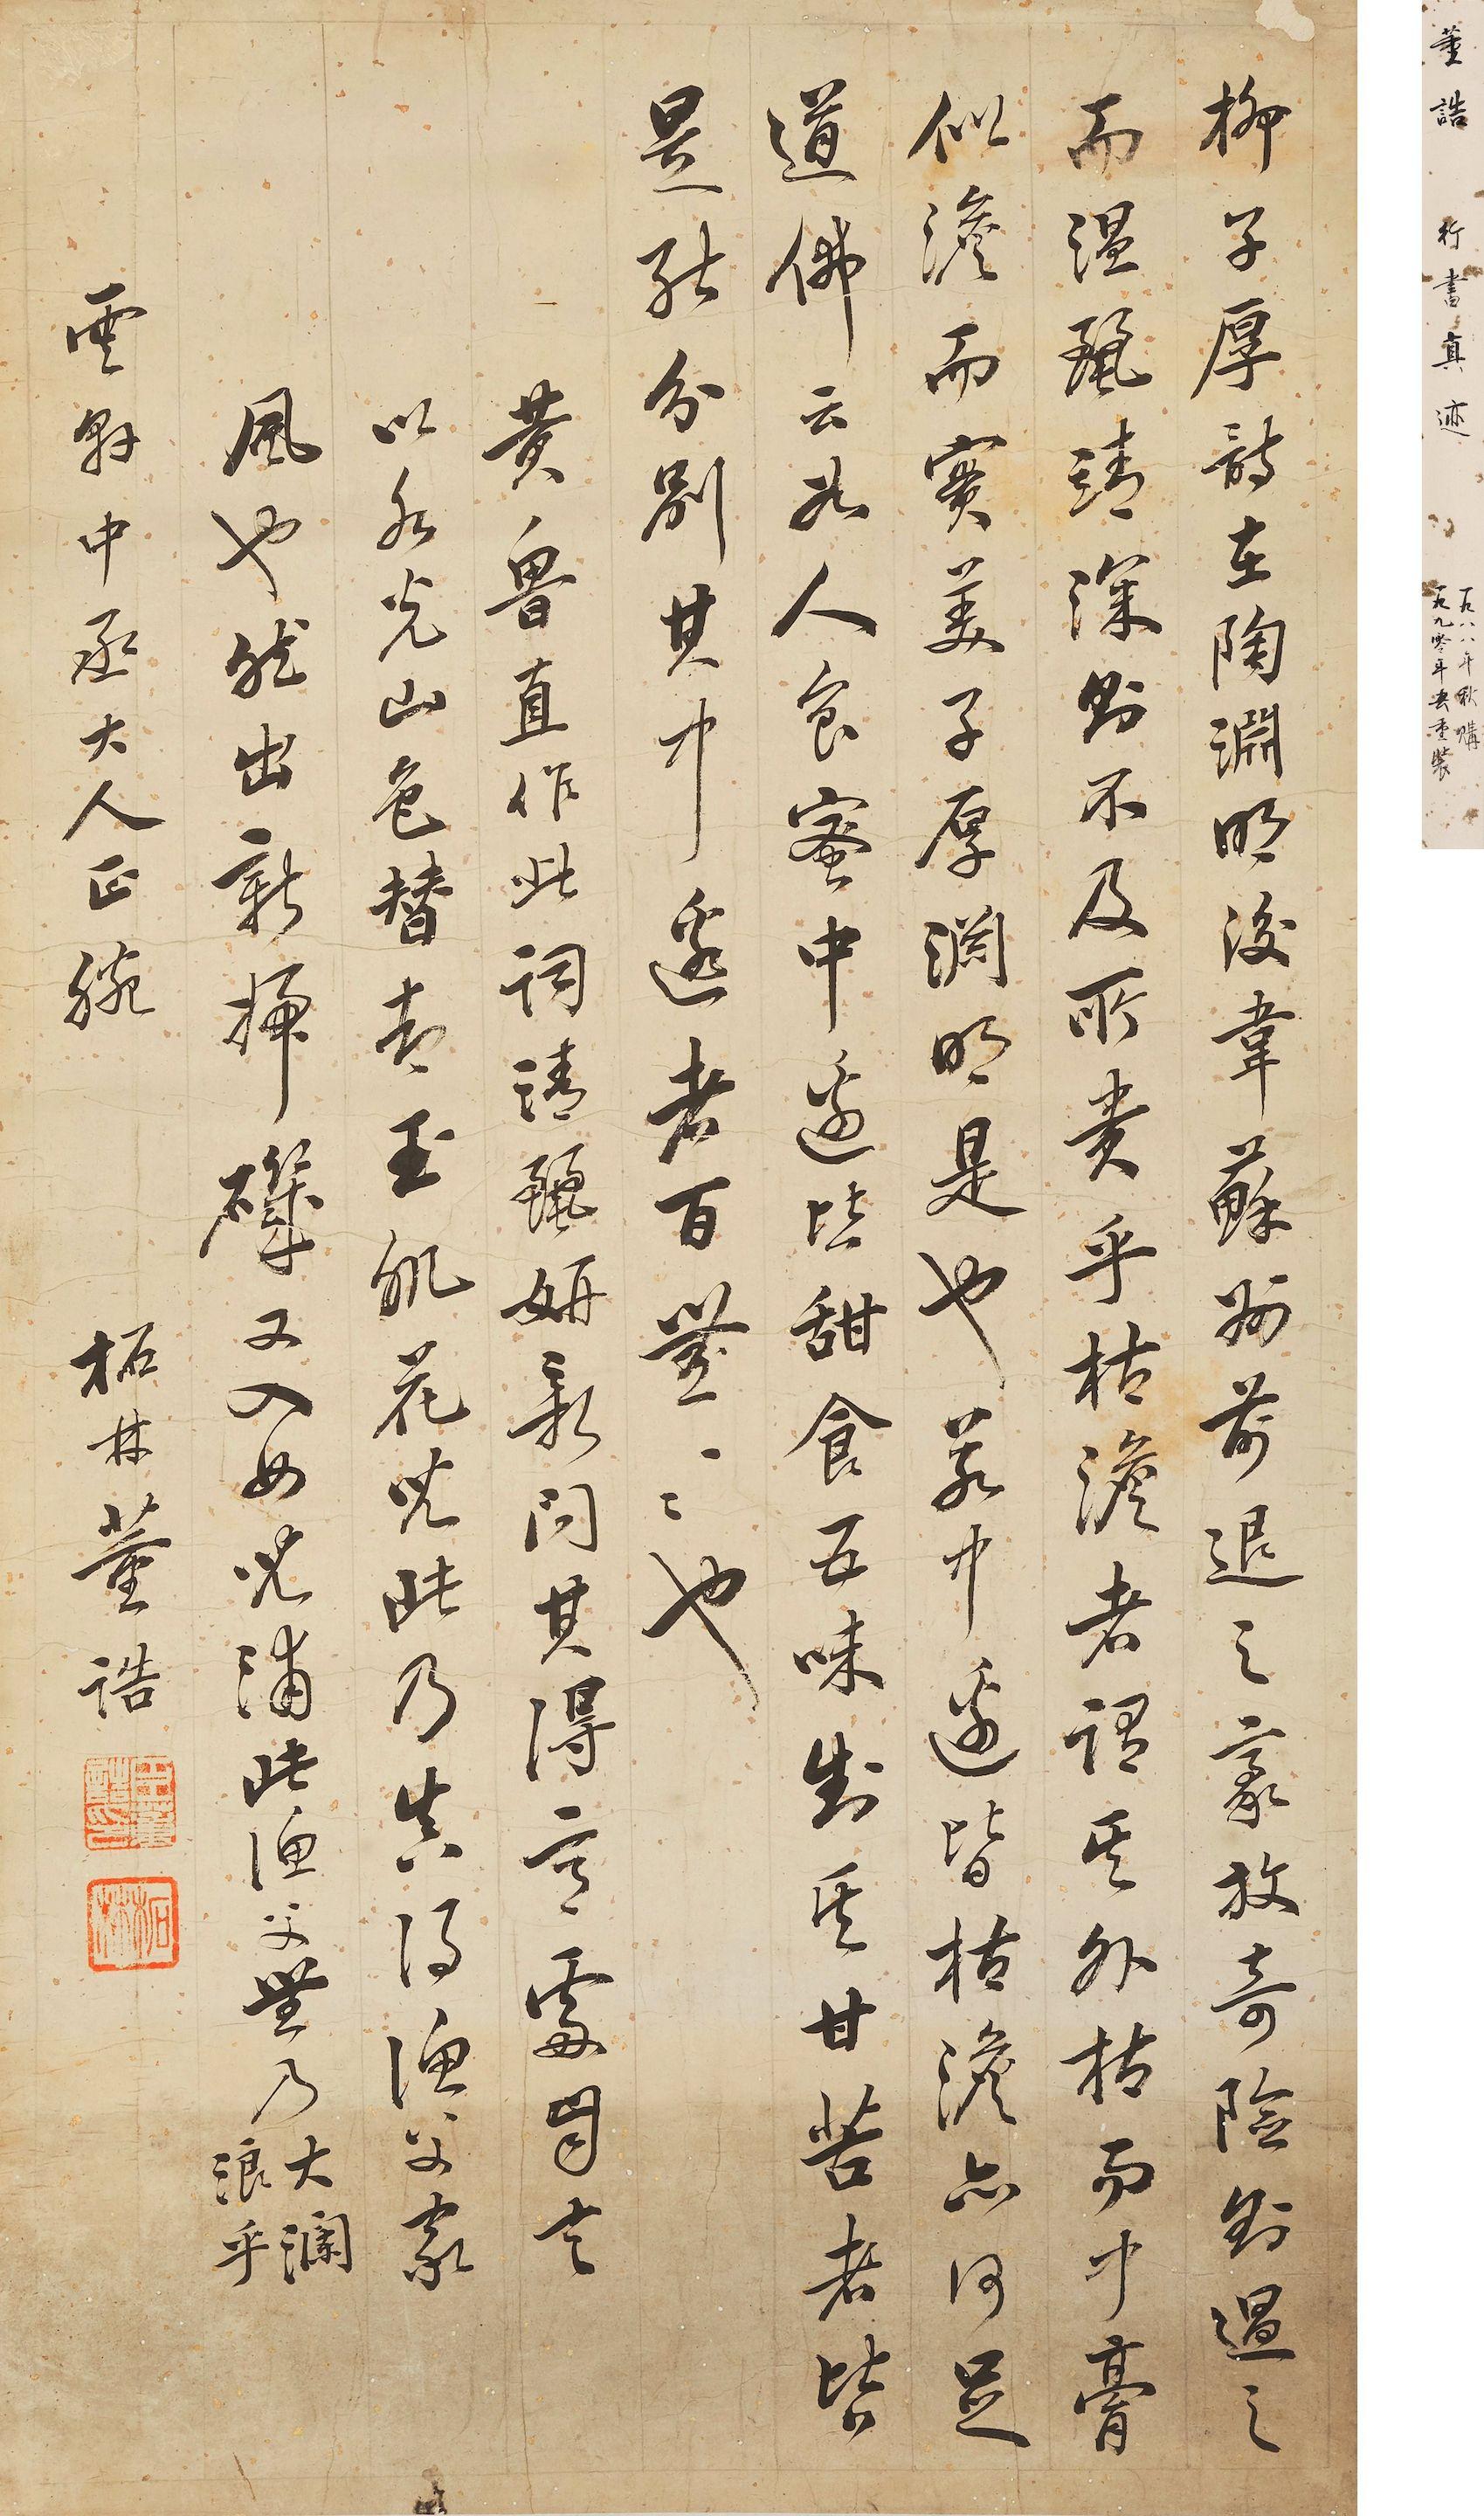 柳子厚詩在陶淵明後韋蘇州前退之豪放奇險則過之
而溫麗靖深則不及所貴乎枯澹者謂其外枯而中膏
似澹而實美子厚淵明是也若中邊皆枯澹亦何足
道佛云如人食蜜中邊皆甜食五味知其甘苦者皆
是能分別其中邊者百無一二也
黃魯直作此詞清麗妍新問其得意處自言
以水光山色替却玉肌花貌此乃真得漁父家
風也然出新婦磯又入女兒浦此漁父無乃大瀾浪乎
雲軒中丞大人正腕 柘林董誥
柘林
董誥 行書真迹
一九八八年秋購
一九九零年重裝